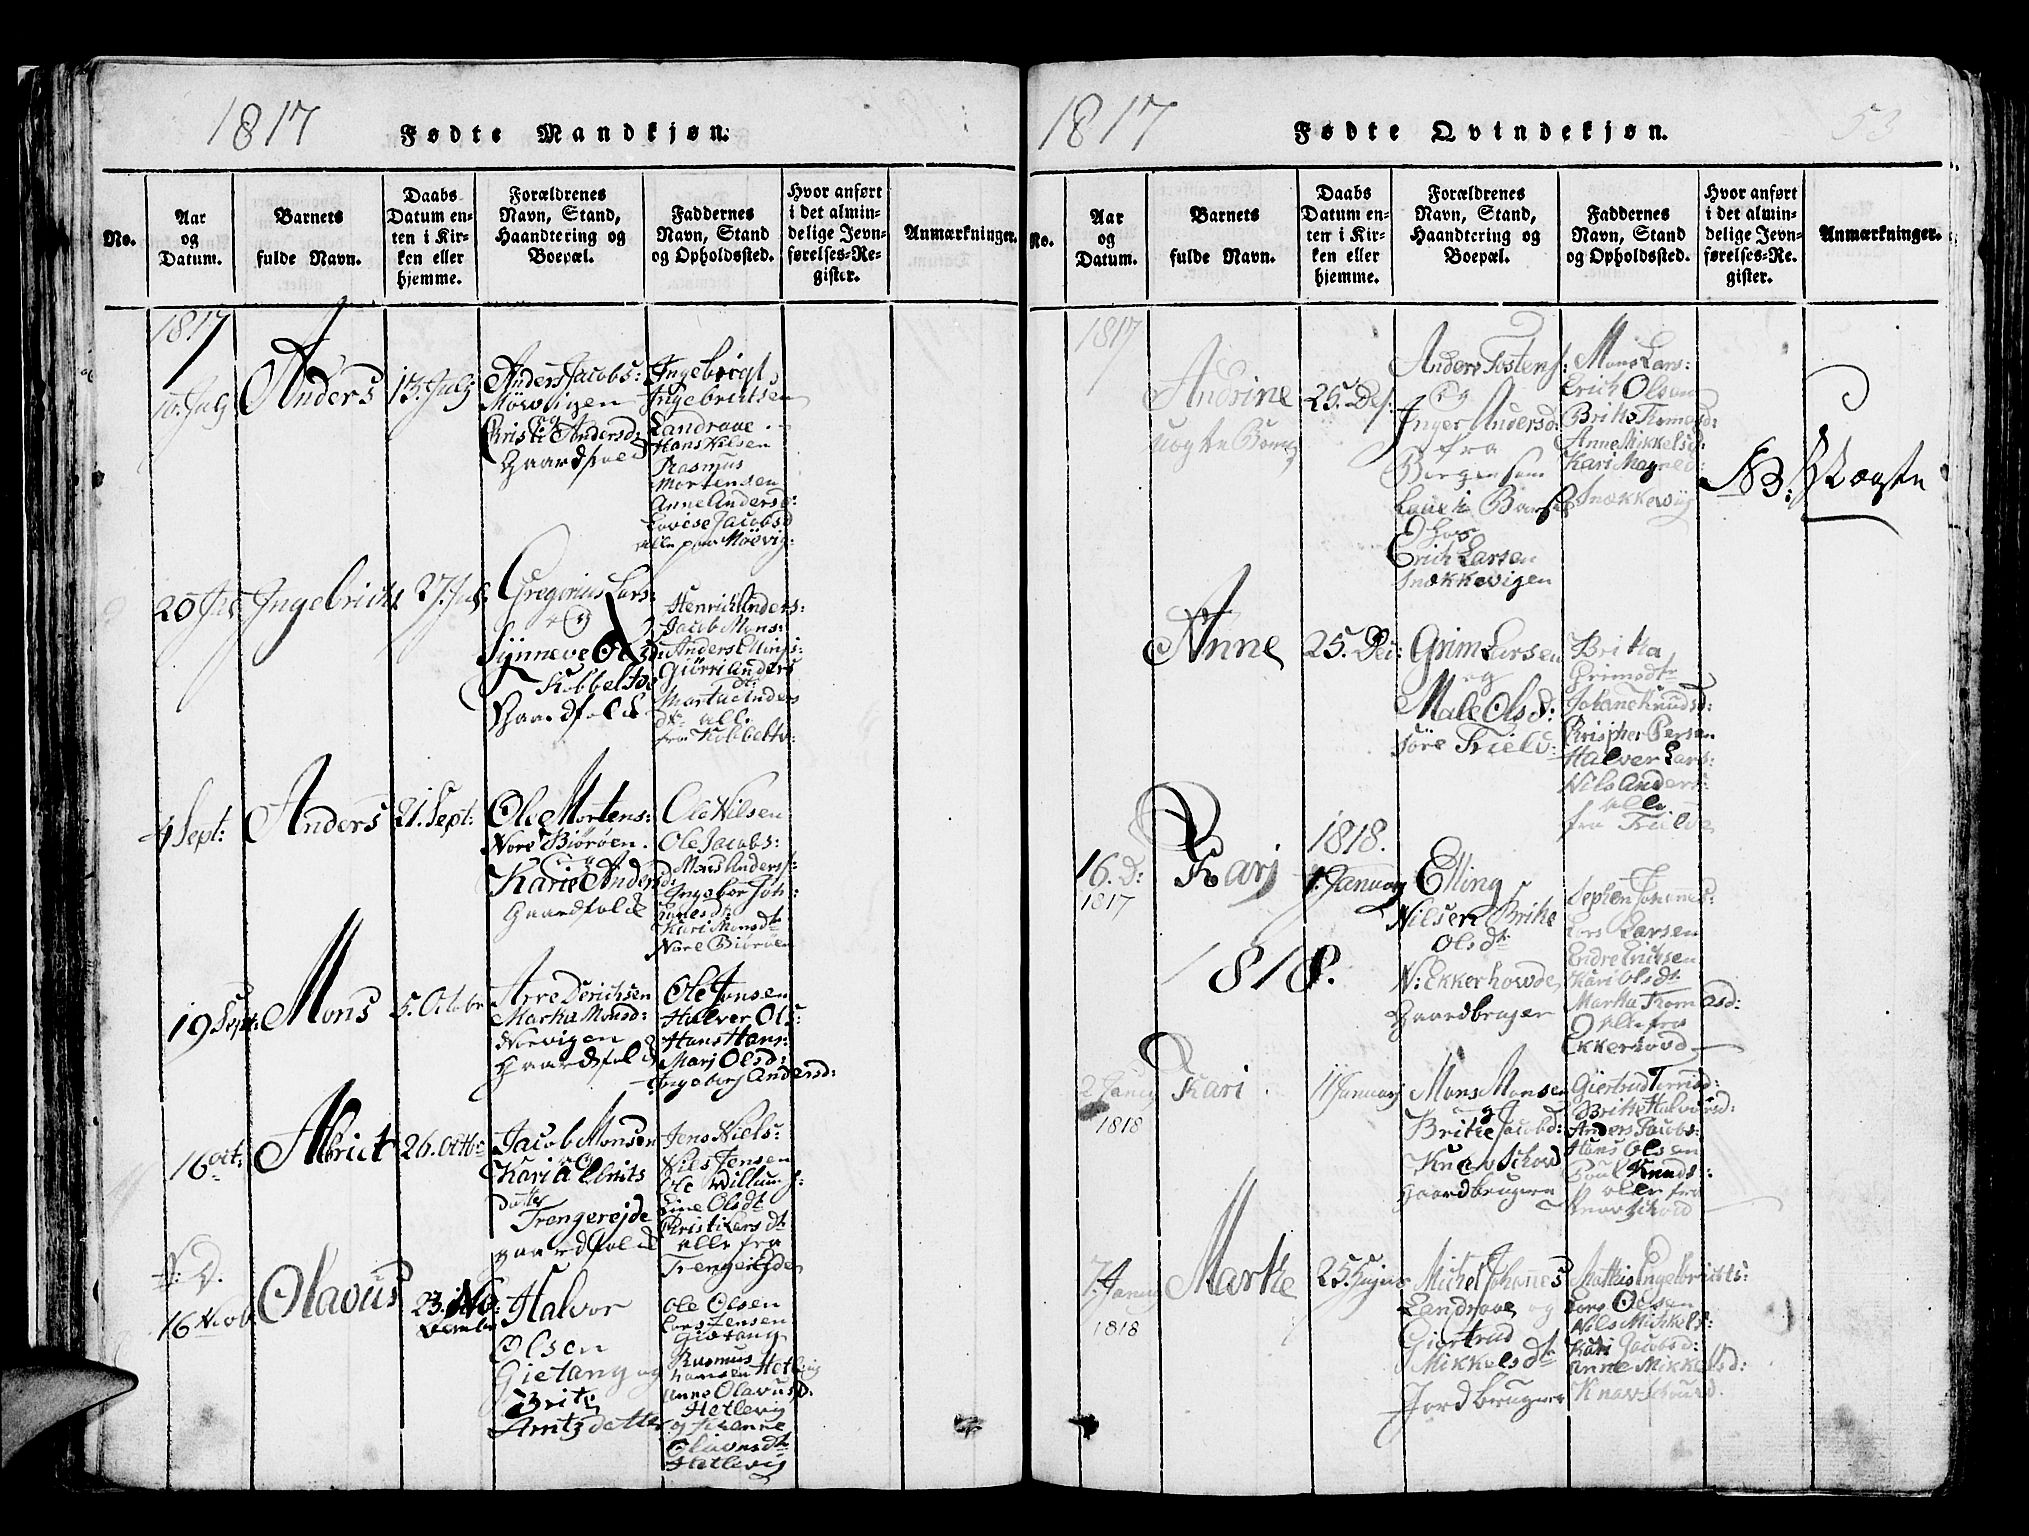 1817
Fødte Mandkjøn.
No.
Aar
og
Datum.
Barnets
fulde Navn.
Daabs
Datum en-
ten i Kir-
ken eller
hjemme.
Forældrenes
Navn, Stand,
Haandtering og
Boepæl.
Faddernes
Navn, Stand
og Opholdssted.
Hvor anført
i det almin-
delige Jevn-
førelses-Re-
gister.
Anmærkninger.
1817
10. Julj
Anders
13. Julj
Anders Jacobs:
Mövvigen
og
Christi Andersd:
Gaardfold
Ingeborgt
Ingebrictsen
Landrave
Hans Nilsen
Rasmus
Mortensen
Anne Andersd:
Lovise Jacobsd
alle paa Mövig:
20 Jul
Ingebricht
27. Jul:
Gregorius Lars:
og
Synneve Olsd
Kobbeltve
Gaardfold
Henrich Anders:
Jacob Mons:
Anders Ellings:
Giörri Anders
dt:
Marta Anders
dt: alle
fra Kobbeltv:
4 Sept:
Anders
21. Sept:
Ole Mortens:
Nore Biöröen.
og
Karie Andersd:
Gaardfolde
Ole Nilsen
Ole Jacobs:
Mons Anders:
Ingebor Joh:
hanesdt
Kari Monsdt
Nore Biöröen
19 Sept:
Mons
5. Octobr
Arre Derichsen
Martha Monsd:
Nörvigen
Gaardfold
Ole Jonsen
Halver Ols:
Hans Hans:
Marj Olsd:
Ingeborj Andersd:
16 Oct:
Albrict
26. Octbr
Jacob Monsen
og
Kari Albrits
Datter
Trengerejde
gaardfold
Jens Niels:
Nils Jensen
Ole Willums:
Line Olsdt
Christi Larsdt
alle fra
Trengerejde
16 Novb
Olavus
23. No:
vember
Halvor
Olsen
Gietang og
Brite
Arntzdatter
Ole Olsen
Lars Jensen
Gietang
Rasmus
Hansen Hetlevig
Anne Olavusd:
Hetlevig
og Johanne
Olavusdt
Hetlevig
1817
Fødte Qvindekjøn.
53
No.
Aar
og
Datum.
Barnets
fulde Navn.
Daabs
Datum en-
ten i Kir-
ken eller
hjemme.
Forældrenes
Navn, Stand,
Haandtering og
Boepæl.
Faddernes
Navn, Stand
og Opholdssted.
Hvor anført
i det almin-
delige Jevn-
førelses-Re-
gister.
Anmærkninger.
1817
Andrine
uægte Barn
25. Des:
Anders Tostens:
og
Inger Andersd:
fra
Bergen som
Laae i Barsel
hos
Erich Larsen
Snækkevigen
Mons Lars:
Erich Olsen
Brithe Thomasd:
Anne Mikkelsd:
Kari Magned:
Snækkevig
NB: Uægte
Anne
25. Dec:
Grim Larsen
og
Male Olsd:
Söre Trielv:
Britha
Grimsdt
Johane Knudsd:
Christpher Persen
Halver Lars:
Nils Anders:
alle
fra Trielve
16. D:
1817
Karj
1818.
1. Januarj
Elling
Nilsen Brithe
Olsdt
N: Ekkerhovde
Gaardbruger
Sephen Johannes:
Lars Larsen
Endre Ericksen
Kari Olsdt
Martha Thomasd:
alle fra
Ekkerhovd
1818.
2 Januarj
1818
Kari
11 Januarj
Mons Monsen
og
Brithe Jacobd:
Knavschoud
Gaardbrugere
Giertrud Tormod:
Brithe Halvorsd:
Anders Jacobs:
Hans Olsen
Poul Knuds:
alle fra
Knavschoud
7. Januarj
1818
Marthe
25. Januar
Michel Johannes
Landrave og
Giertrud
Mikkelsdt
Jordbruger
Mathis Ingebrictts:
Lars Olsen
Nils Michkels:
Kari Jacobsd:
Anne Mikkelsd:
Knavschoud.